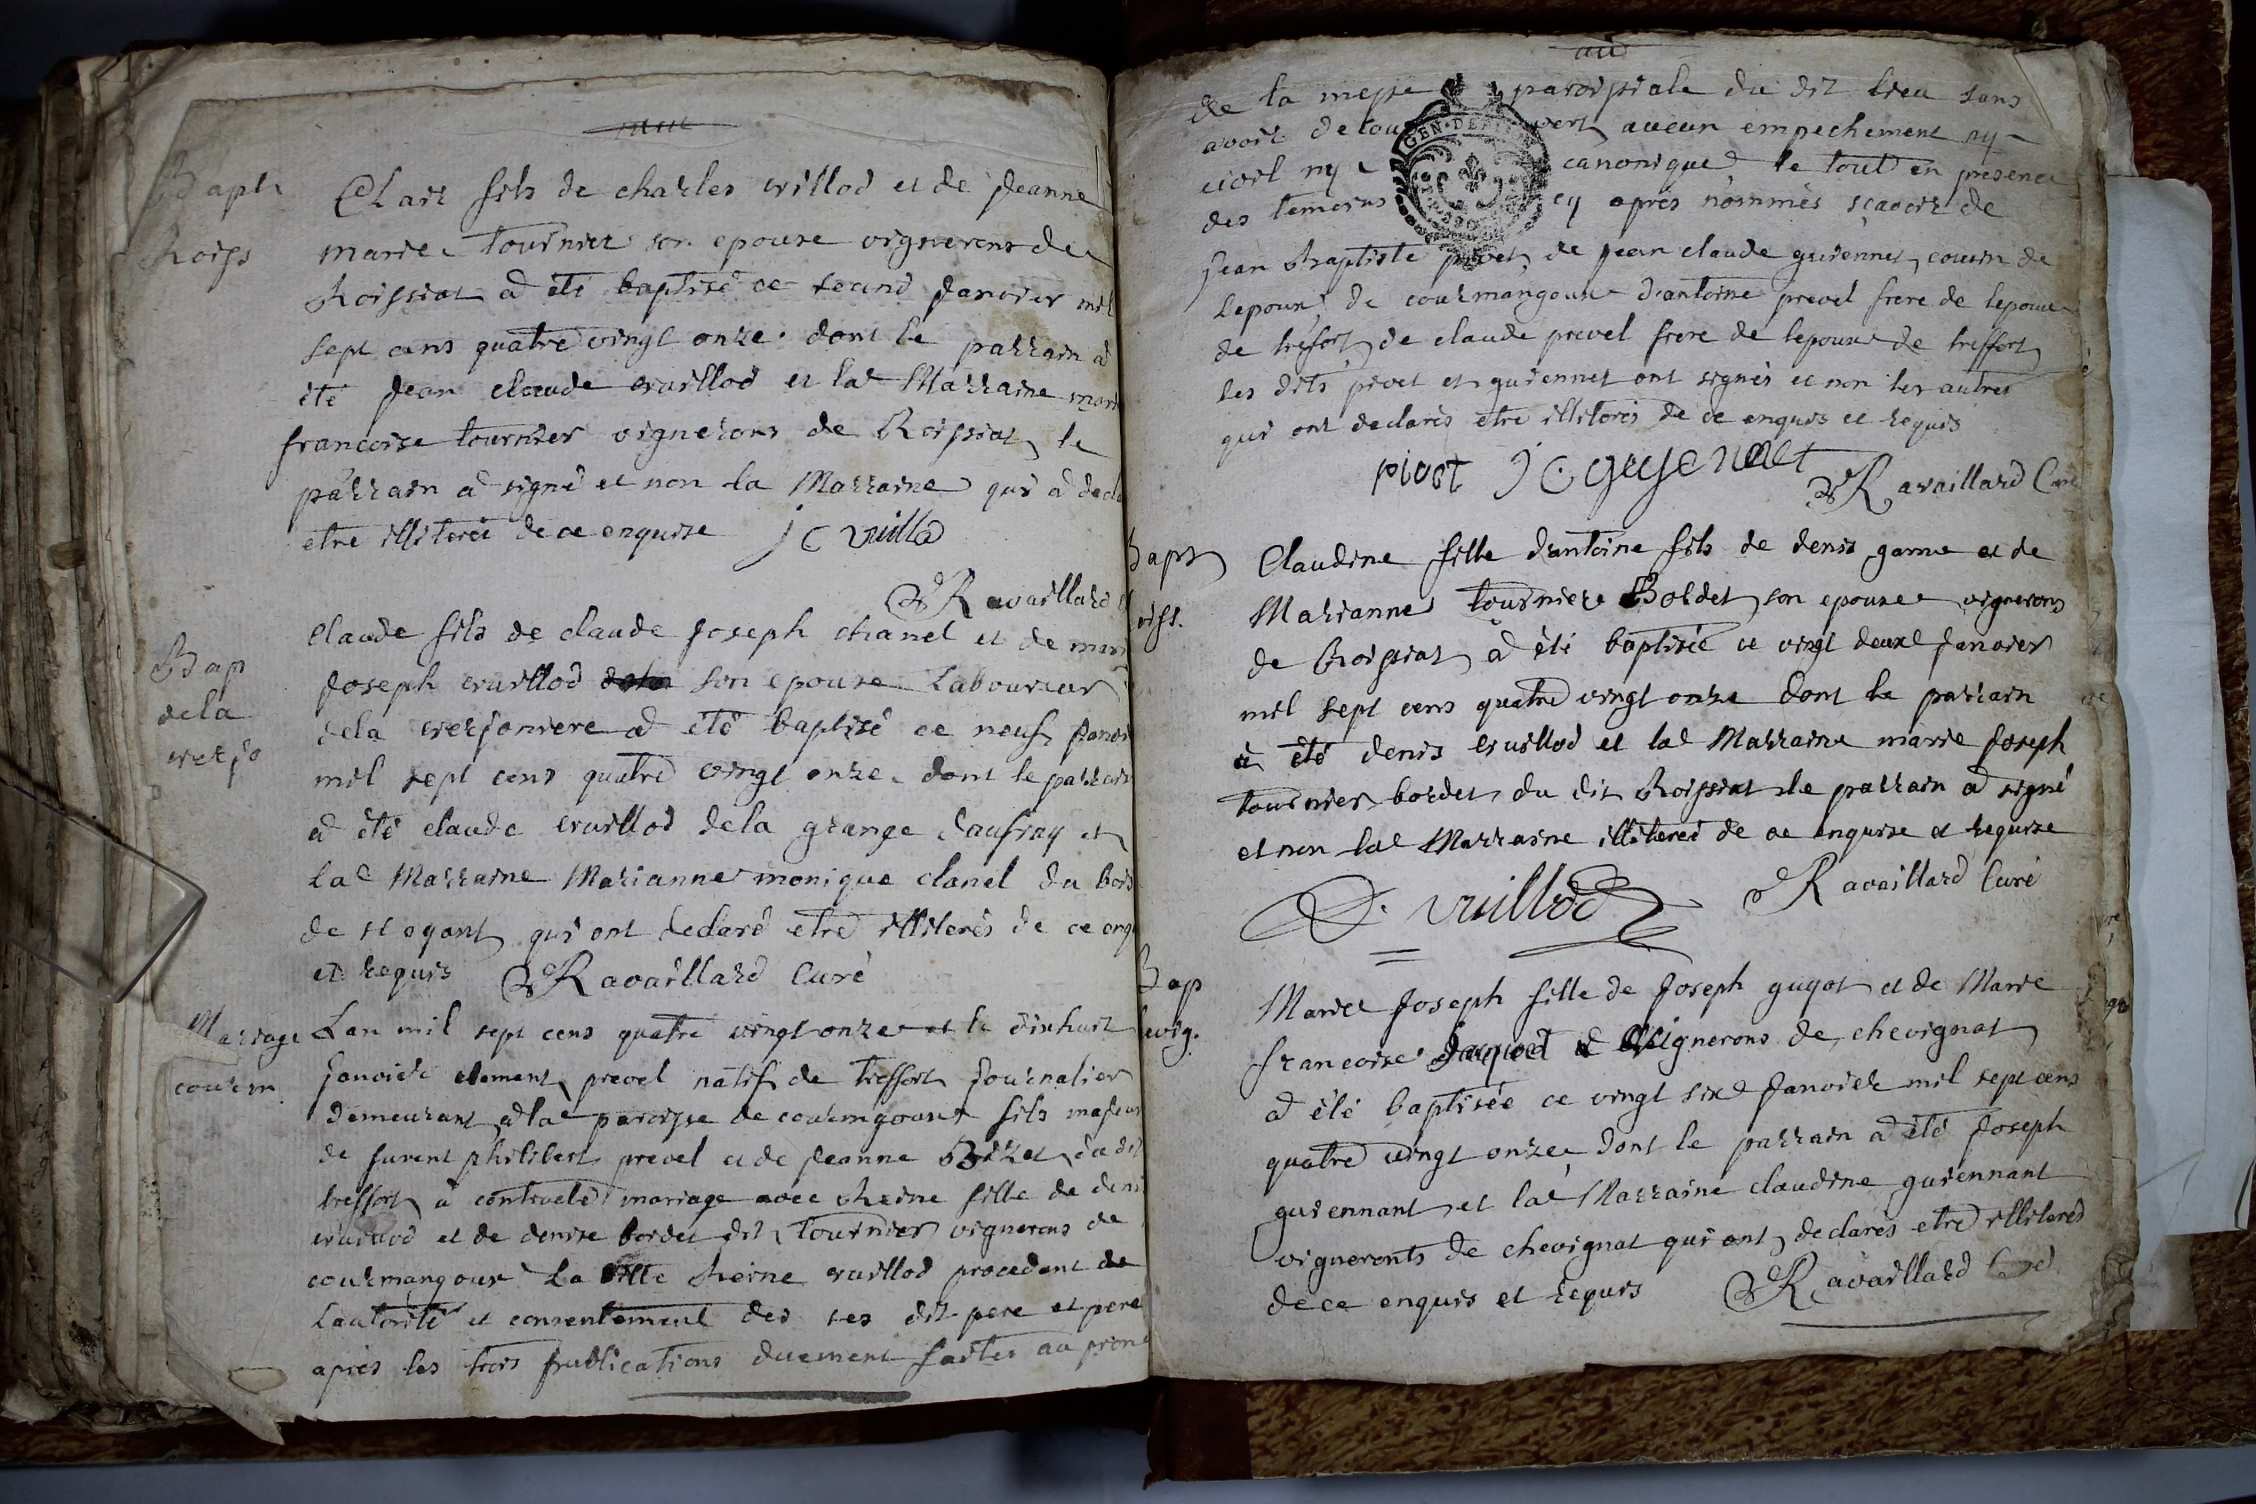 Bapt
Roiss
Clair fils de charles vuillod et de Jeanne
marie tournier son epouse vignerons de
Roissiat a été baptisé ce second Janvier mil
sept cens quatre vingt onze dont le parrain a
été Jean claude vuillod et la Marraine
francoise tournier vignerons de Roissiat le
parrain a signé et non la Marraine qui a
etre illiterée de ce enquise j c vuillod
Ravaillard
Bap
dela
verjo
Claude fils de claude Joseph chanel et de
Joseph vuillod son epouse Laboureur
dela verjoniere a été baptisé ce neuf
mil sept cens quatre vingt onze dont le parrain
a été claude vuillod dela grange et
la Marraine Marianne monique du bois
de qui ont declaré etre illiterés de ce
et requis Ravaillard Curé
Mariage
courm
Lan mil sept cens quatre vingt onze et le dixhuit
Janvier clement prevel natif de treffort Journalier
demeurant a la paroisse de fils majeur
de furent philibert prevel et de Jeanne du dit
treffort a contracté mariage avec Reine fille de denis
vuillod et de denise bordet dit tournier vignerons de
courmangoux La Reine vuillod procedant de
Lautorité et consentement des ses dit pere et pere
apres les trois publications duement faites au
de la messe paroissiale du dit lieu sans
avoir aucun empechement ny
civil ny canonique le tout en presence
des temoins cy après nommés sçavoir de
Jean Baptiste pivet, de Jean claude guiennet cousin de
Lepoux de courmangoux d'antoine prevel frere de lepoux
de trefort de claude prevel frere de lepoux de treffort
les dits pivet et guiennet ont signés et non les autres
qui ont declarés etre illiterés de ce enquis et requis
pivet J C guienet
Ravaillard Curé
Bapt
oiss.
Claudine fille d'antoine fils de denis game et de
Marianne tournier Boldet son epouse vignerons
de Roissiat a été baptisée ce vingt deux Janvier
mil sept cens quatre vingt onze dont le parrain
a été denis vuillod et la Marraine marie Joseph
tournier bordet du dit Roissiat le parrain a signé
et non la Marraine illiteree de ce enquise et requise
D. vuillod
Ravaillard Curé
Bap
evig.
Marie Joseph fille de Joseph guyot et de Marie
francoise Vignerons de chevignat
a été baptisée ce vingt six Janvier mil sept cens
quatre vingt onze dont le parrain a été Joseph
guiennant et la Marraine claudine guiennant
vignerons de chevignat qui ont declarés etre illiterés
de ce enquis et requis Ravaillard Curé